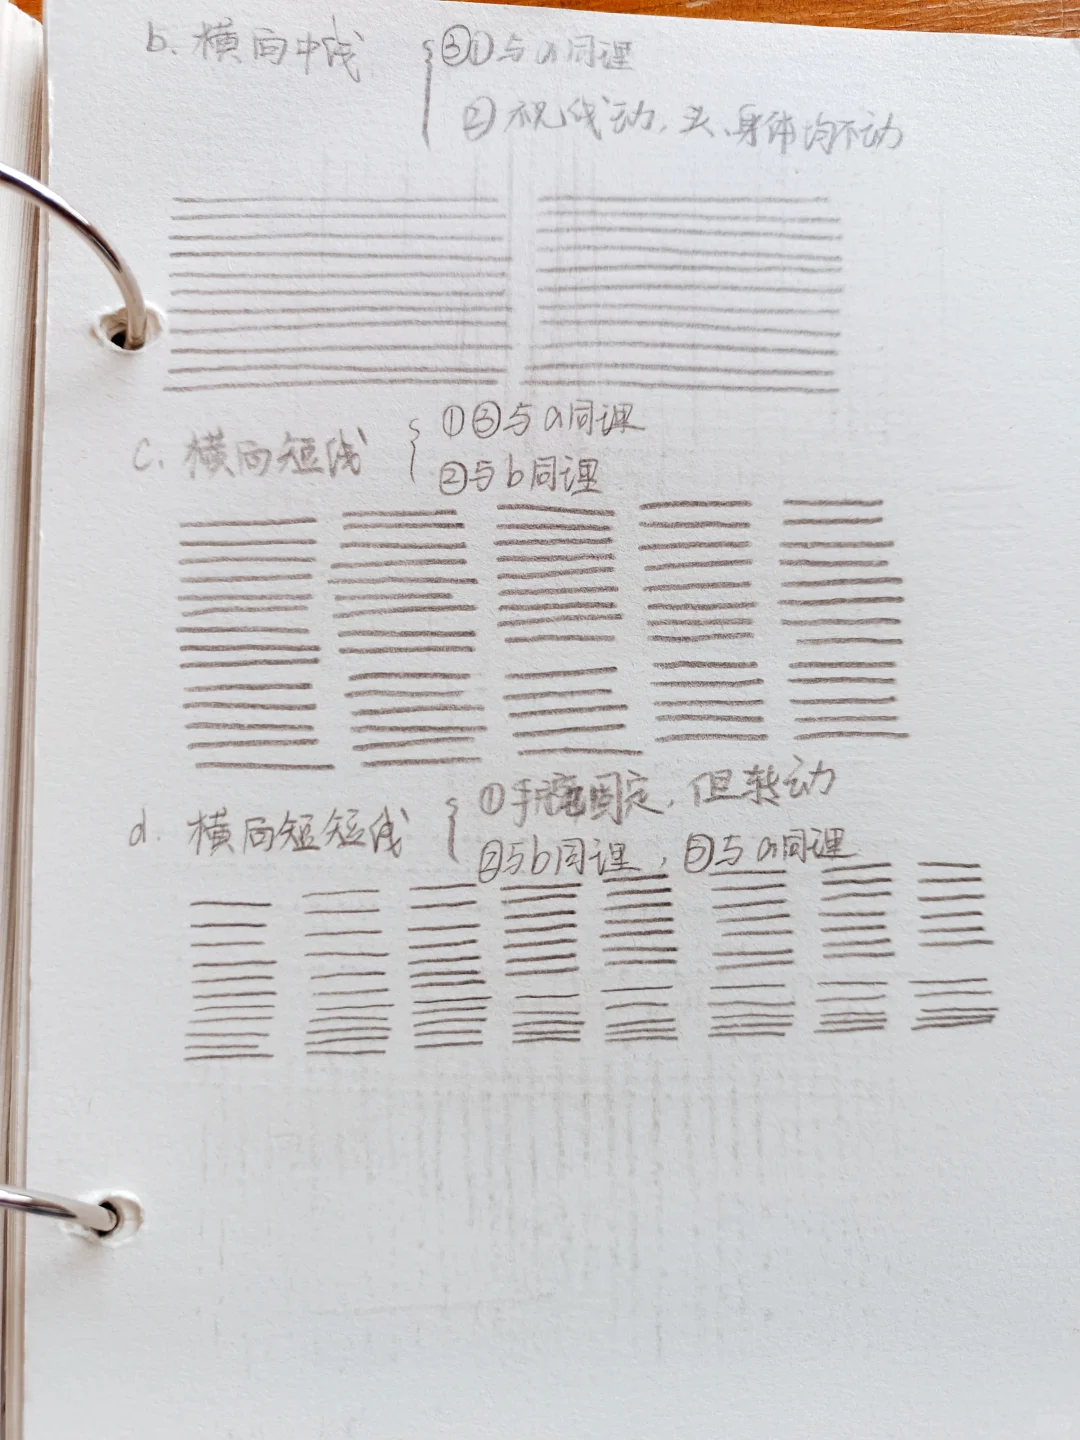 b. 横向中线 ③①与a同理
②视线动,头、身体均不动
c. 横向短线 ①③与a同理
②与b同理
d. 横向短短线 ①手腕固定,但转动
②与b同理,③与a同理